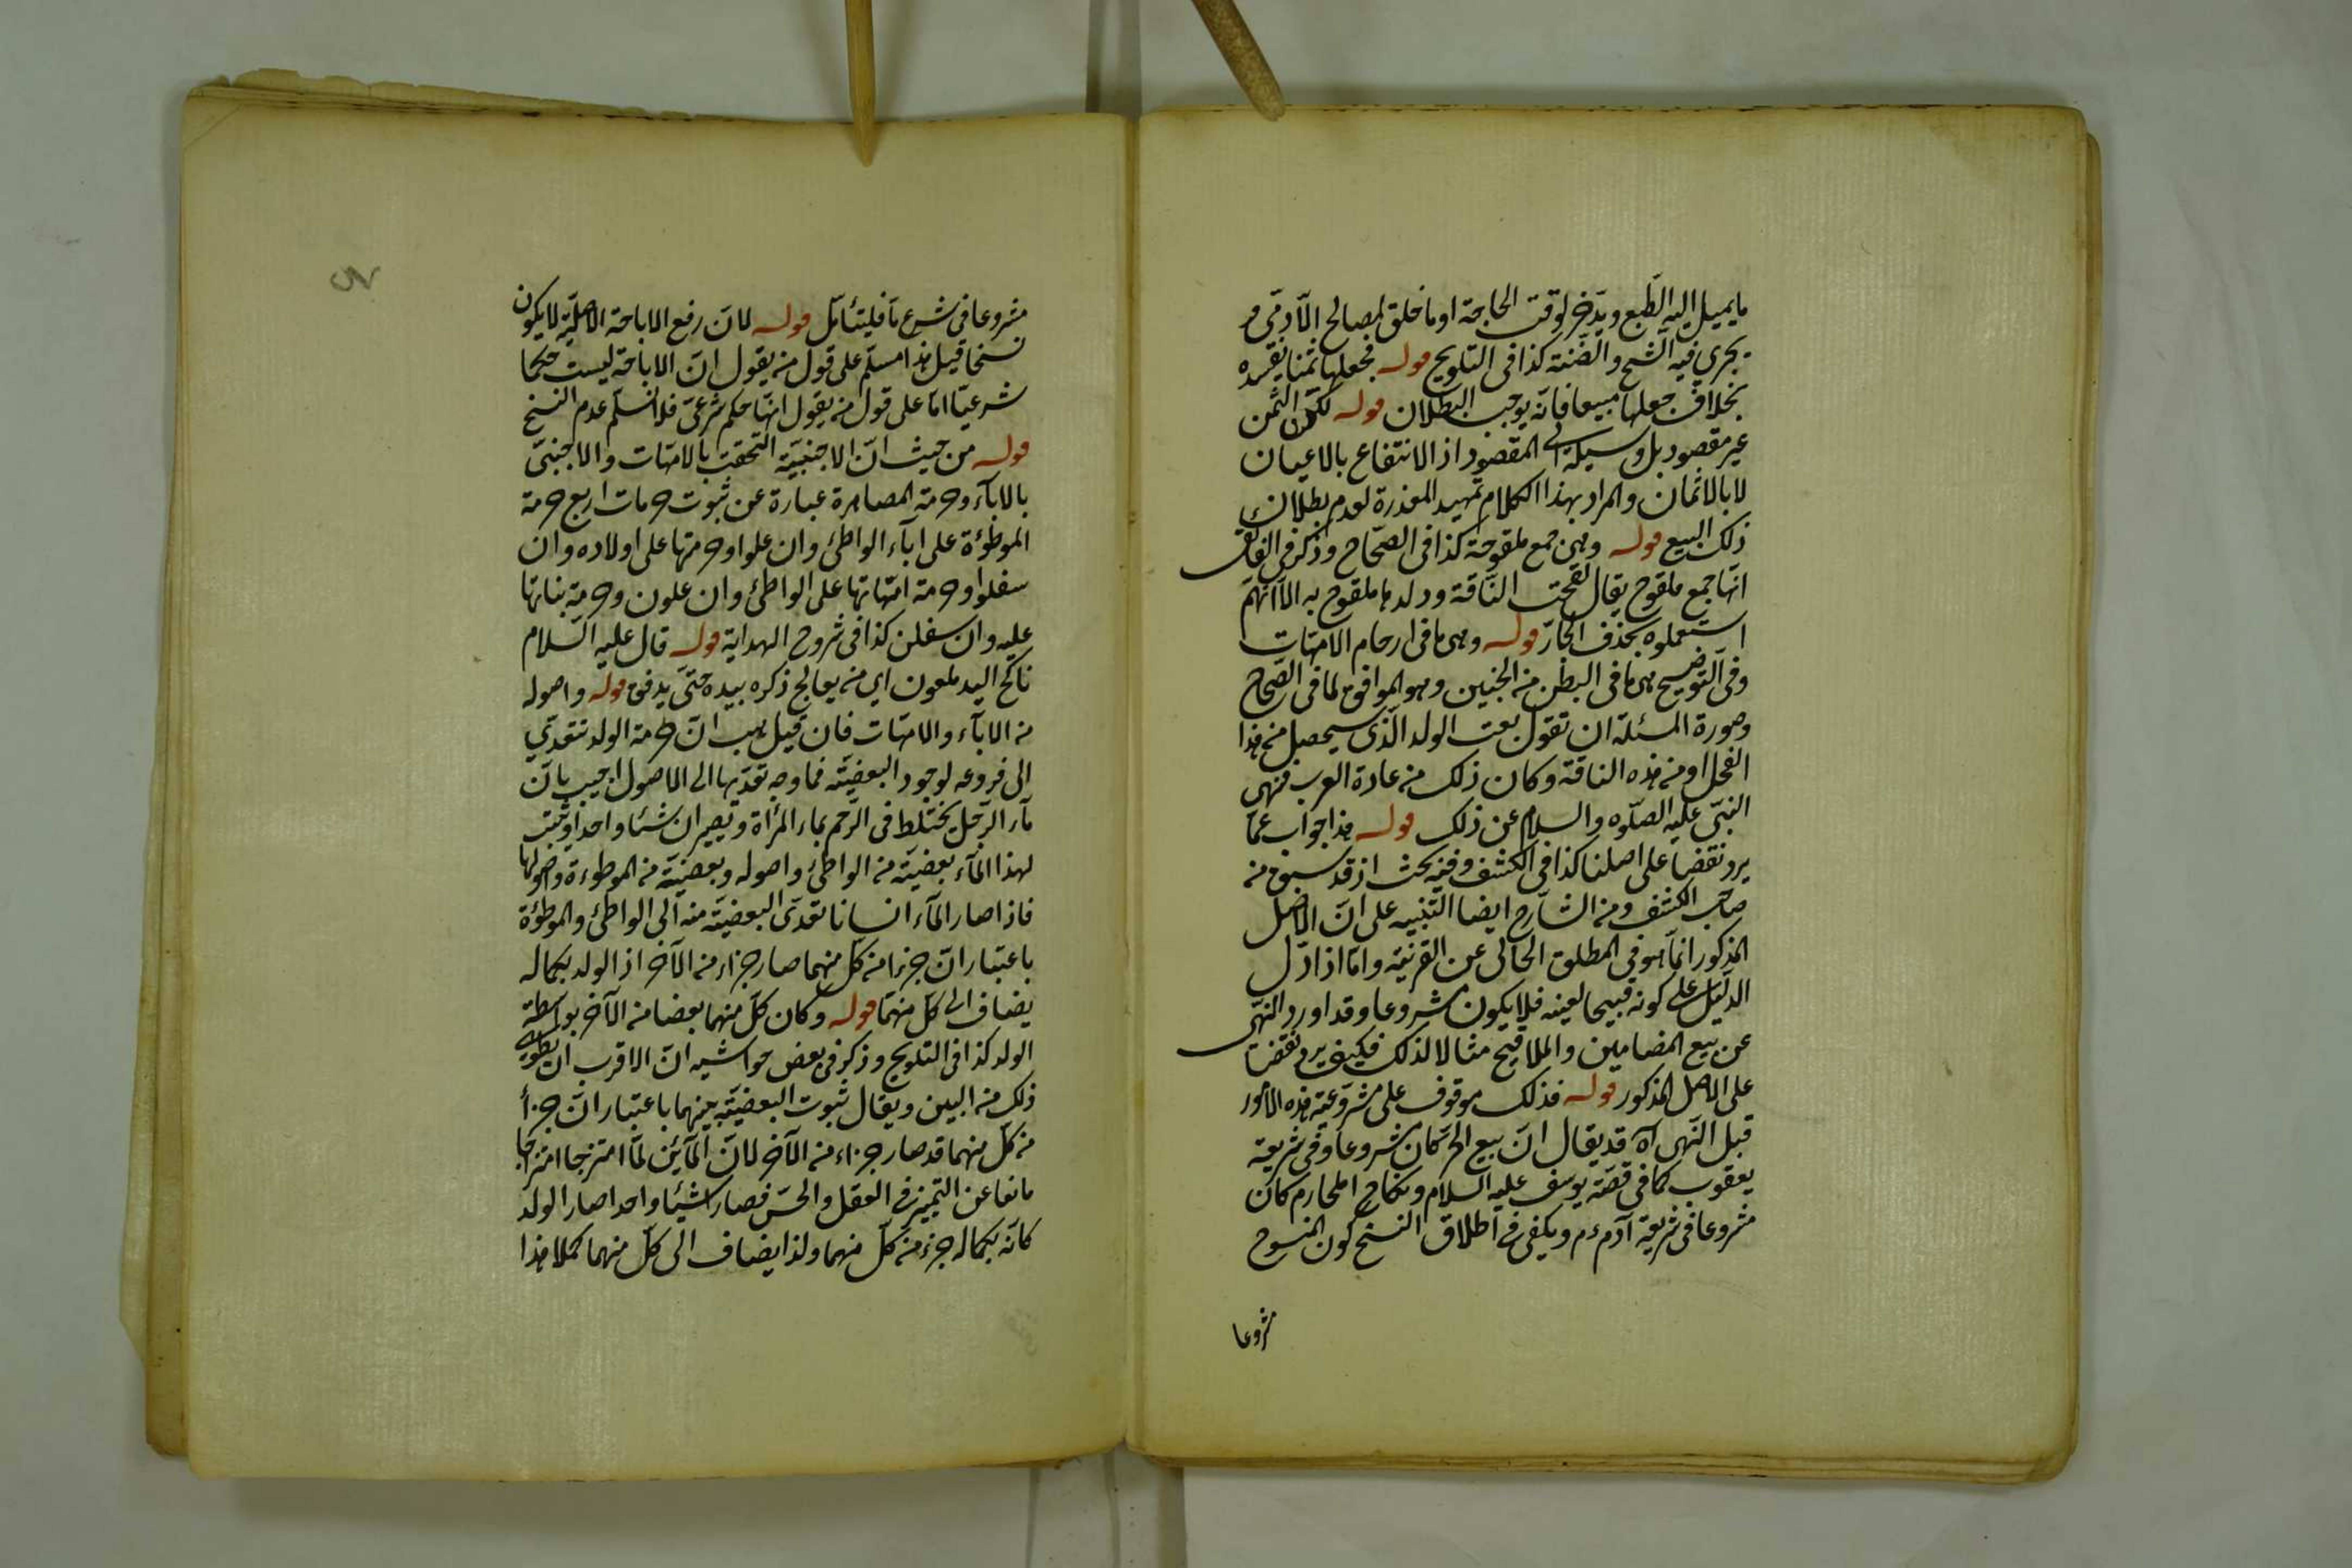 ما يميل اليه الطبع ويدّخر لوقت الحاجة او ما خلق لمصالح الآدمّي و
يجري فيه الشح والضنة كذا في التلويح قوله فجعلها ثمنا يفسده
بخلاف جعلها مبيعا فانّه يوجب البطلان قوله لكن الثمن
غير مقصود بل وسيلة الى المقصود اذ الانتفاع بالاعيان
لا بالاثمان والمراد بهذا الكلام تمهيد المعذرة لعدم بطلان
ذلك البيع قوله وهى جمع ملقوحة كذا فى الصّحاح وذكر فى الفائق
انّها جمع ملقوح يقال لقحت النّاقة وولدها ملقوح به الّا انّهم
استعملوه بحذف الجارّ قوله وهى ما فى ارحام الامّهات
وفى التوضيح هى ما فى البطن من الجنين وهو الموافق لما فى الصّحاح
وصورة المسئلة ان تقول بعت الولد الّذى سيحصل من هذا
الفحل او من هذه الناقة وكان ذلك من عادة العرب فنهى
النبّى عليه الصلوه والسلام عن ذلك قوله هذا جواب عمّا
يرد نقضا على اصلنا كذا فى الكشف وفيه بحث اذ قد سبق من
صاحب الكشف ومن الشارح ايضا التنبيه على انّ الاصل
المذكور انمّا هو في المطلق الخالى عن القرينة وامّا اذا دلّ
الدليل على كونه قبيحا لعينه فلا يكون مشروعا وقد اورد النّهى
عن بيع المضامين والملاقيح مثالا لذلك فكيف يرد نقضا
على الاصل المذكور قوله فذلك موقوف على مشروعية هذه الامور
قبل النّهى آه قد يقال انّ بيع الحر كان مشروعا وفى شريعة
يعقوب كما فى قصّة يوسف عليه السلام ونكاح المحارم كان
مشروعا فى شريعة آدم ءم ويكفى فى اطلاق النسخ كون المنسوخ
مشروعا
مشروعا فى شرع ما فليتأمّل قوله لانّ رفع الاباحة الاصليّة لا يكون
نسخا قيل هذا مسلّم على قول من يقول انّ الاباحة ليست حكما
شرعيّا امّا على قول من يقول انّها حكم شرعىّ فلا نسلّم عدم النسخ
قوله من حيث انّ الاجنبيّة التحقت بالامّهات والاجنبىّ
بالاباء وحرمة المصاهرة عبارة عن ثبوت حرمات اربع حرمة
الموطوءة على اباء الواطئ وان علوا وحرمتها على اولاده وان
سفلوا وحرمة امّهاتها على الواطئ وان علون وحرمة بناتها
عليه وان سفلن كذا فى شروح الهداية قوله قال عليه السلام
ناكح اليد ملعون اي من يعالج ذكره بيده حتّى يدفق قوله واصوله
من الاباء والامهات فان قيل هب انّ حرمة الولد تتعدّي
الى فروعه لوجود البعضيّة فما وجه تعدّيها الى الاصول اجيب بانّ
ماء الرّجل يختلط فى الرّحم بماء المرأة ويصيران شئا واحدا ويثبت
لهذا الماء بعضيّة من الواطئ واصوله وبعضيّة من الموطوءة واصولها
فاذا صار الماء انسانا تعدّى البعضيّة منه الى الواطئ والموطؤة
باعتبار انّ جزءا من كلّ منهما صار جزاء من الآخر اذ الولد بكماله
يضاف الى كلّ منهما قوله وكان كلّ منهما بعضا من الآخر بواسطة
الولد كذا فى التلويح وذكر فى بعض حواشيه انّ الاقرب ان يطوى
ذلك من البين ويقال ثبوت البعضيّة بينهما باعتبار انّ جزأ
من كلّ منهما قد صار جزاء من الآخر لانّ المائين لمّا امتزجا امتزاجا
مانعا عن التمييز فى العقل والحسّ فصارا شيئا واحدا صار الولد
كانّه بكماله جزء من كلّ منهما ولذا يضاف الى كلّ منهما كملا هذا